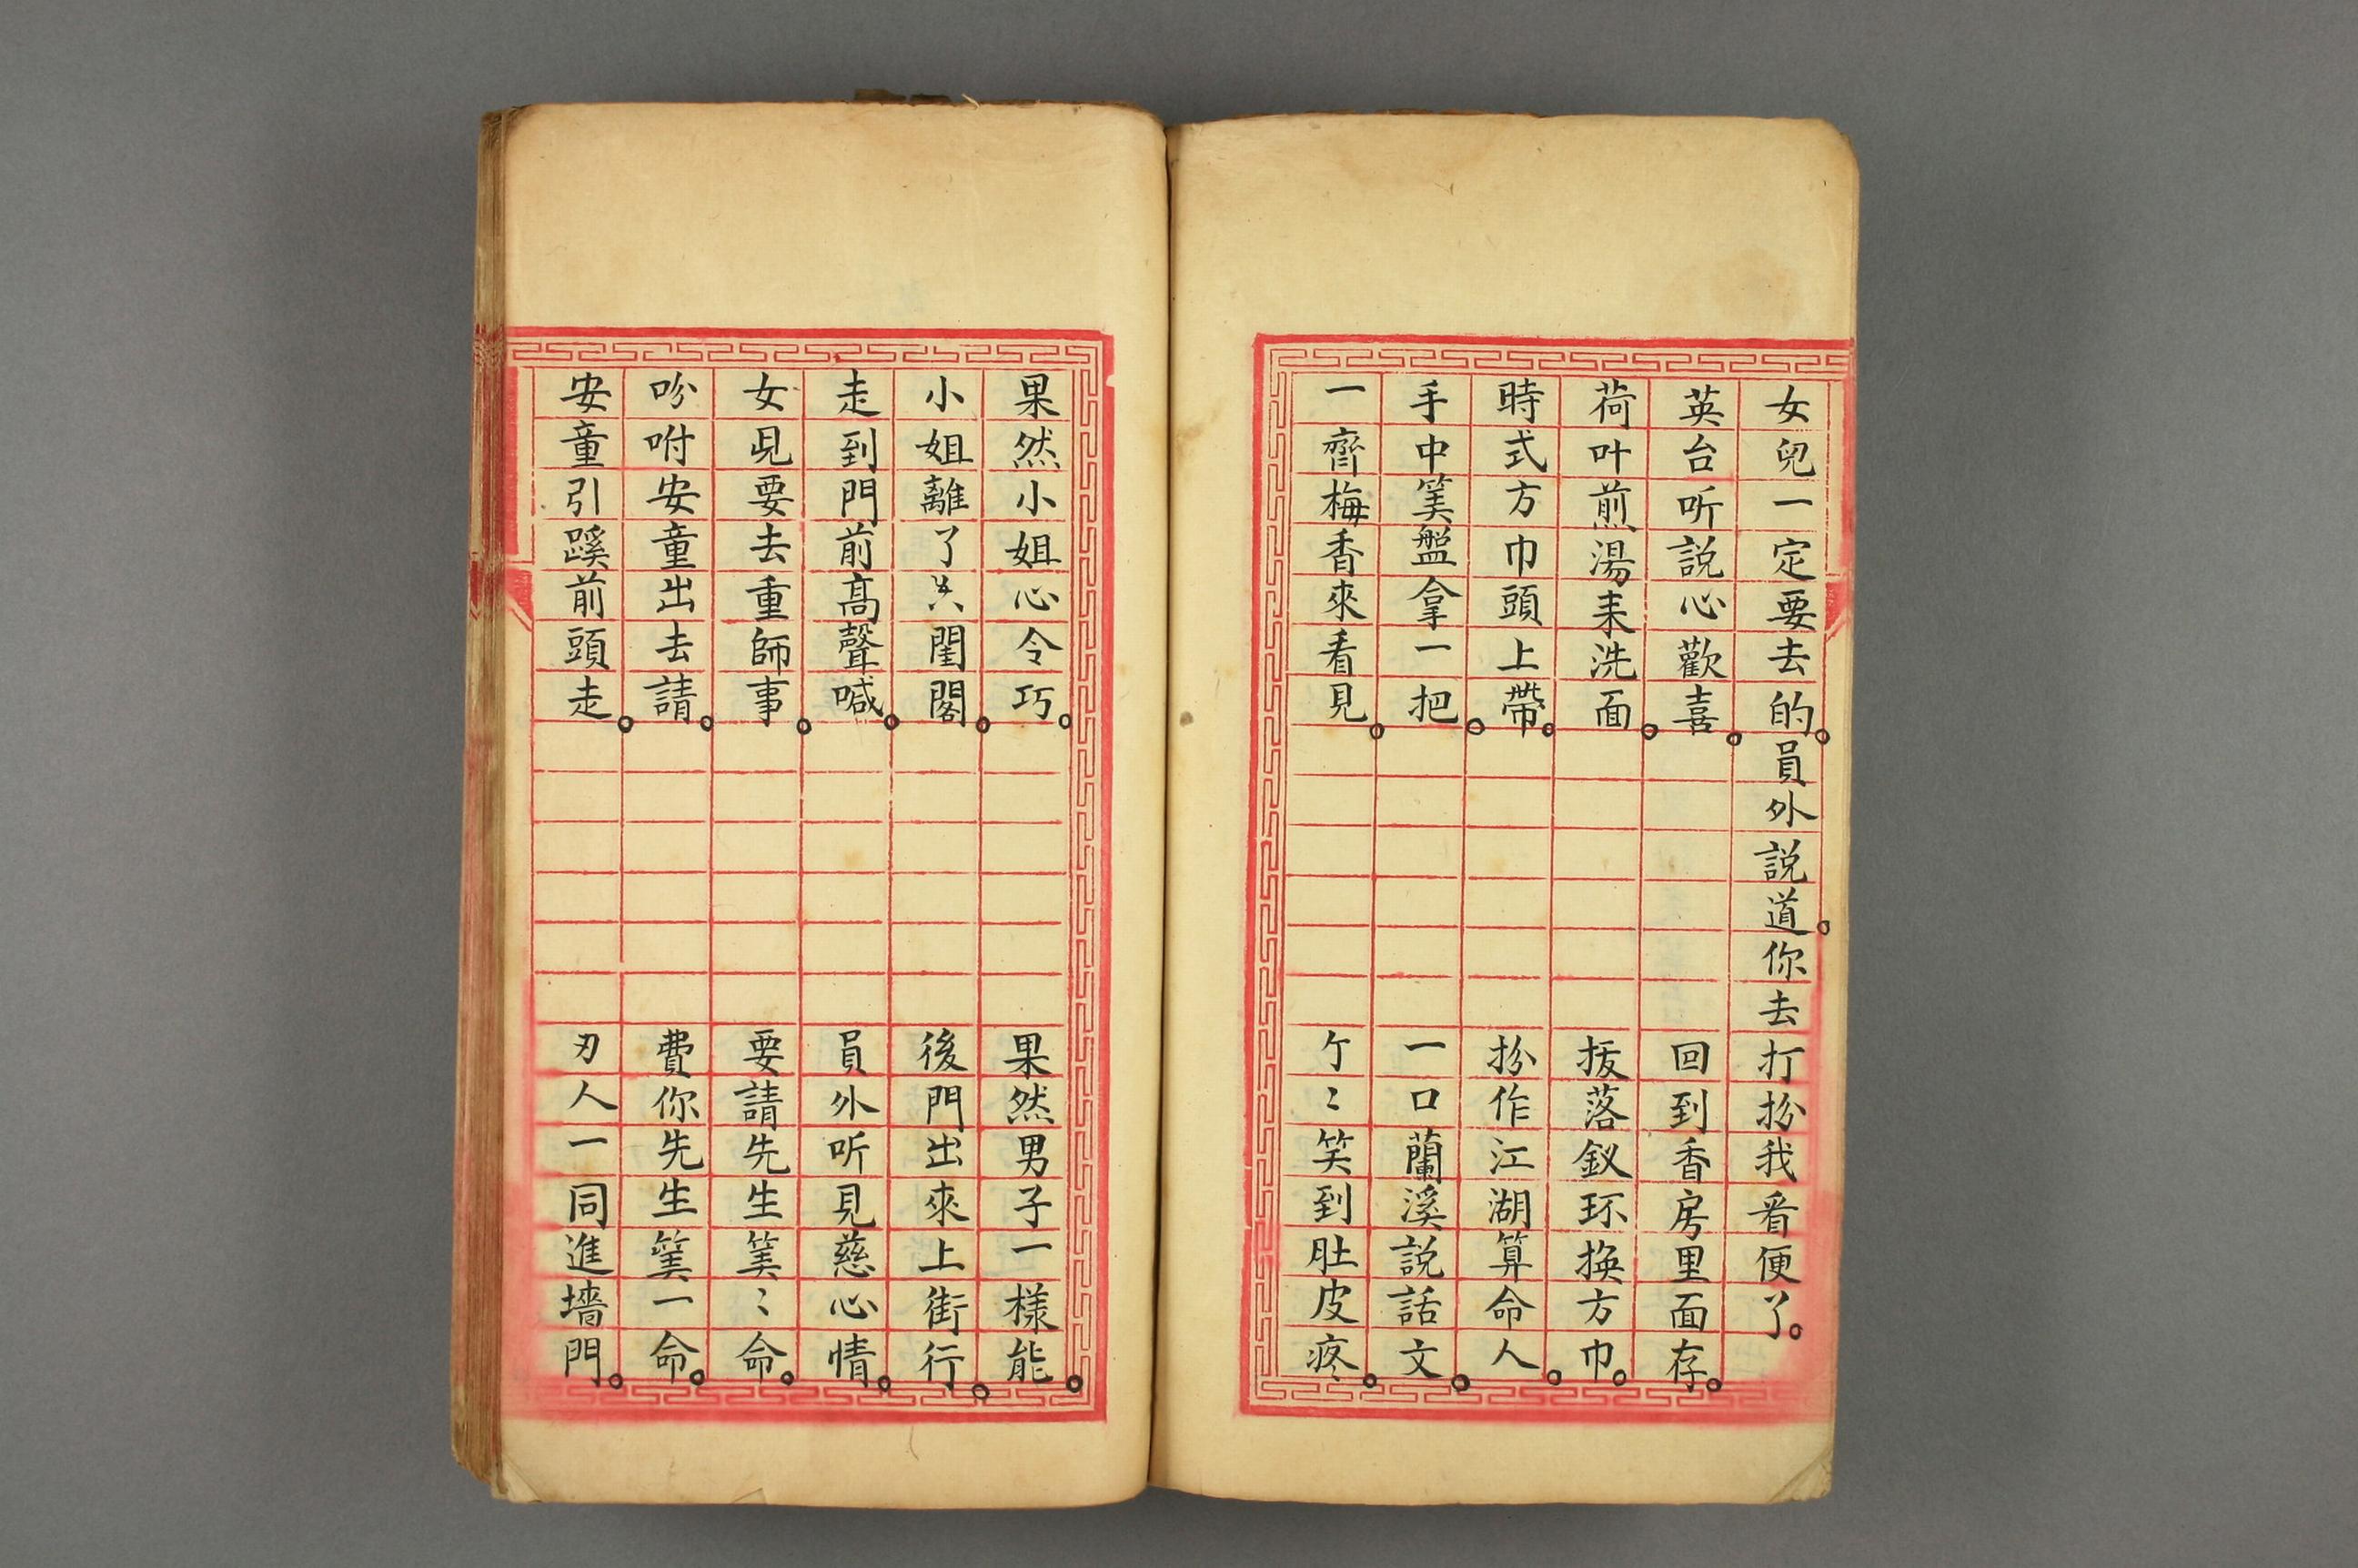 女兒一定要去的。員外説道。你去打扮我看便了。
英台听説心歡喜。回到香房里面存。
荷叶煎湯来洗面。拔落釵环換方巾。
時式方巾頭上帶。扮作江湖算命人。
手中筭盤拿一把。一口蘭溪説話文。
一齊梅香來看見。个〻笑到肚皮疼。
果然小姐心令巧。果然男子一樣能。
小姐離了 閨閣。後門出來上街行。
走到門前高聲喊。員外听見慈心情。
女見要去重師事。要請先生筭〻命。
吩咐安童出去請。費你先生筭一命。
安童引蹊前頭走。刃人一同進墻門。